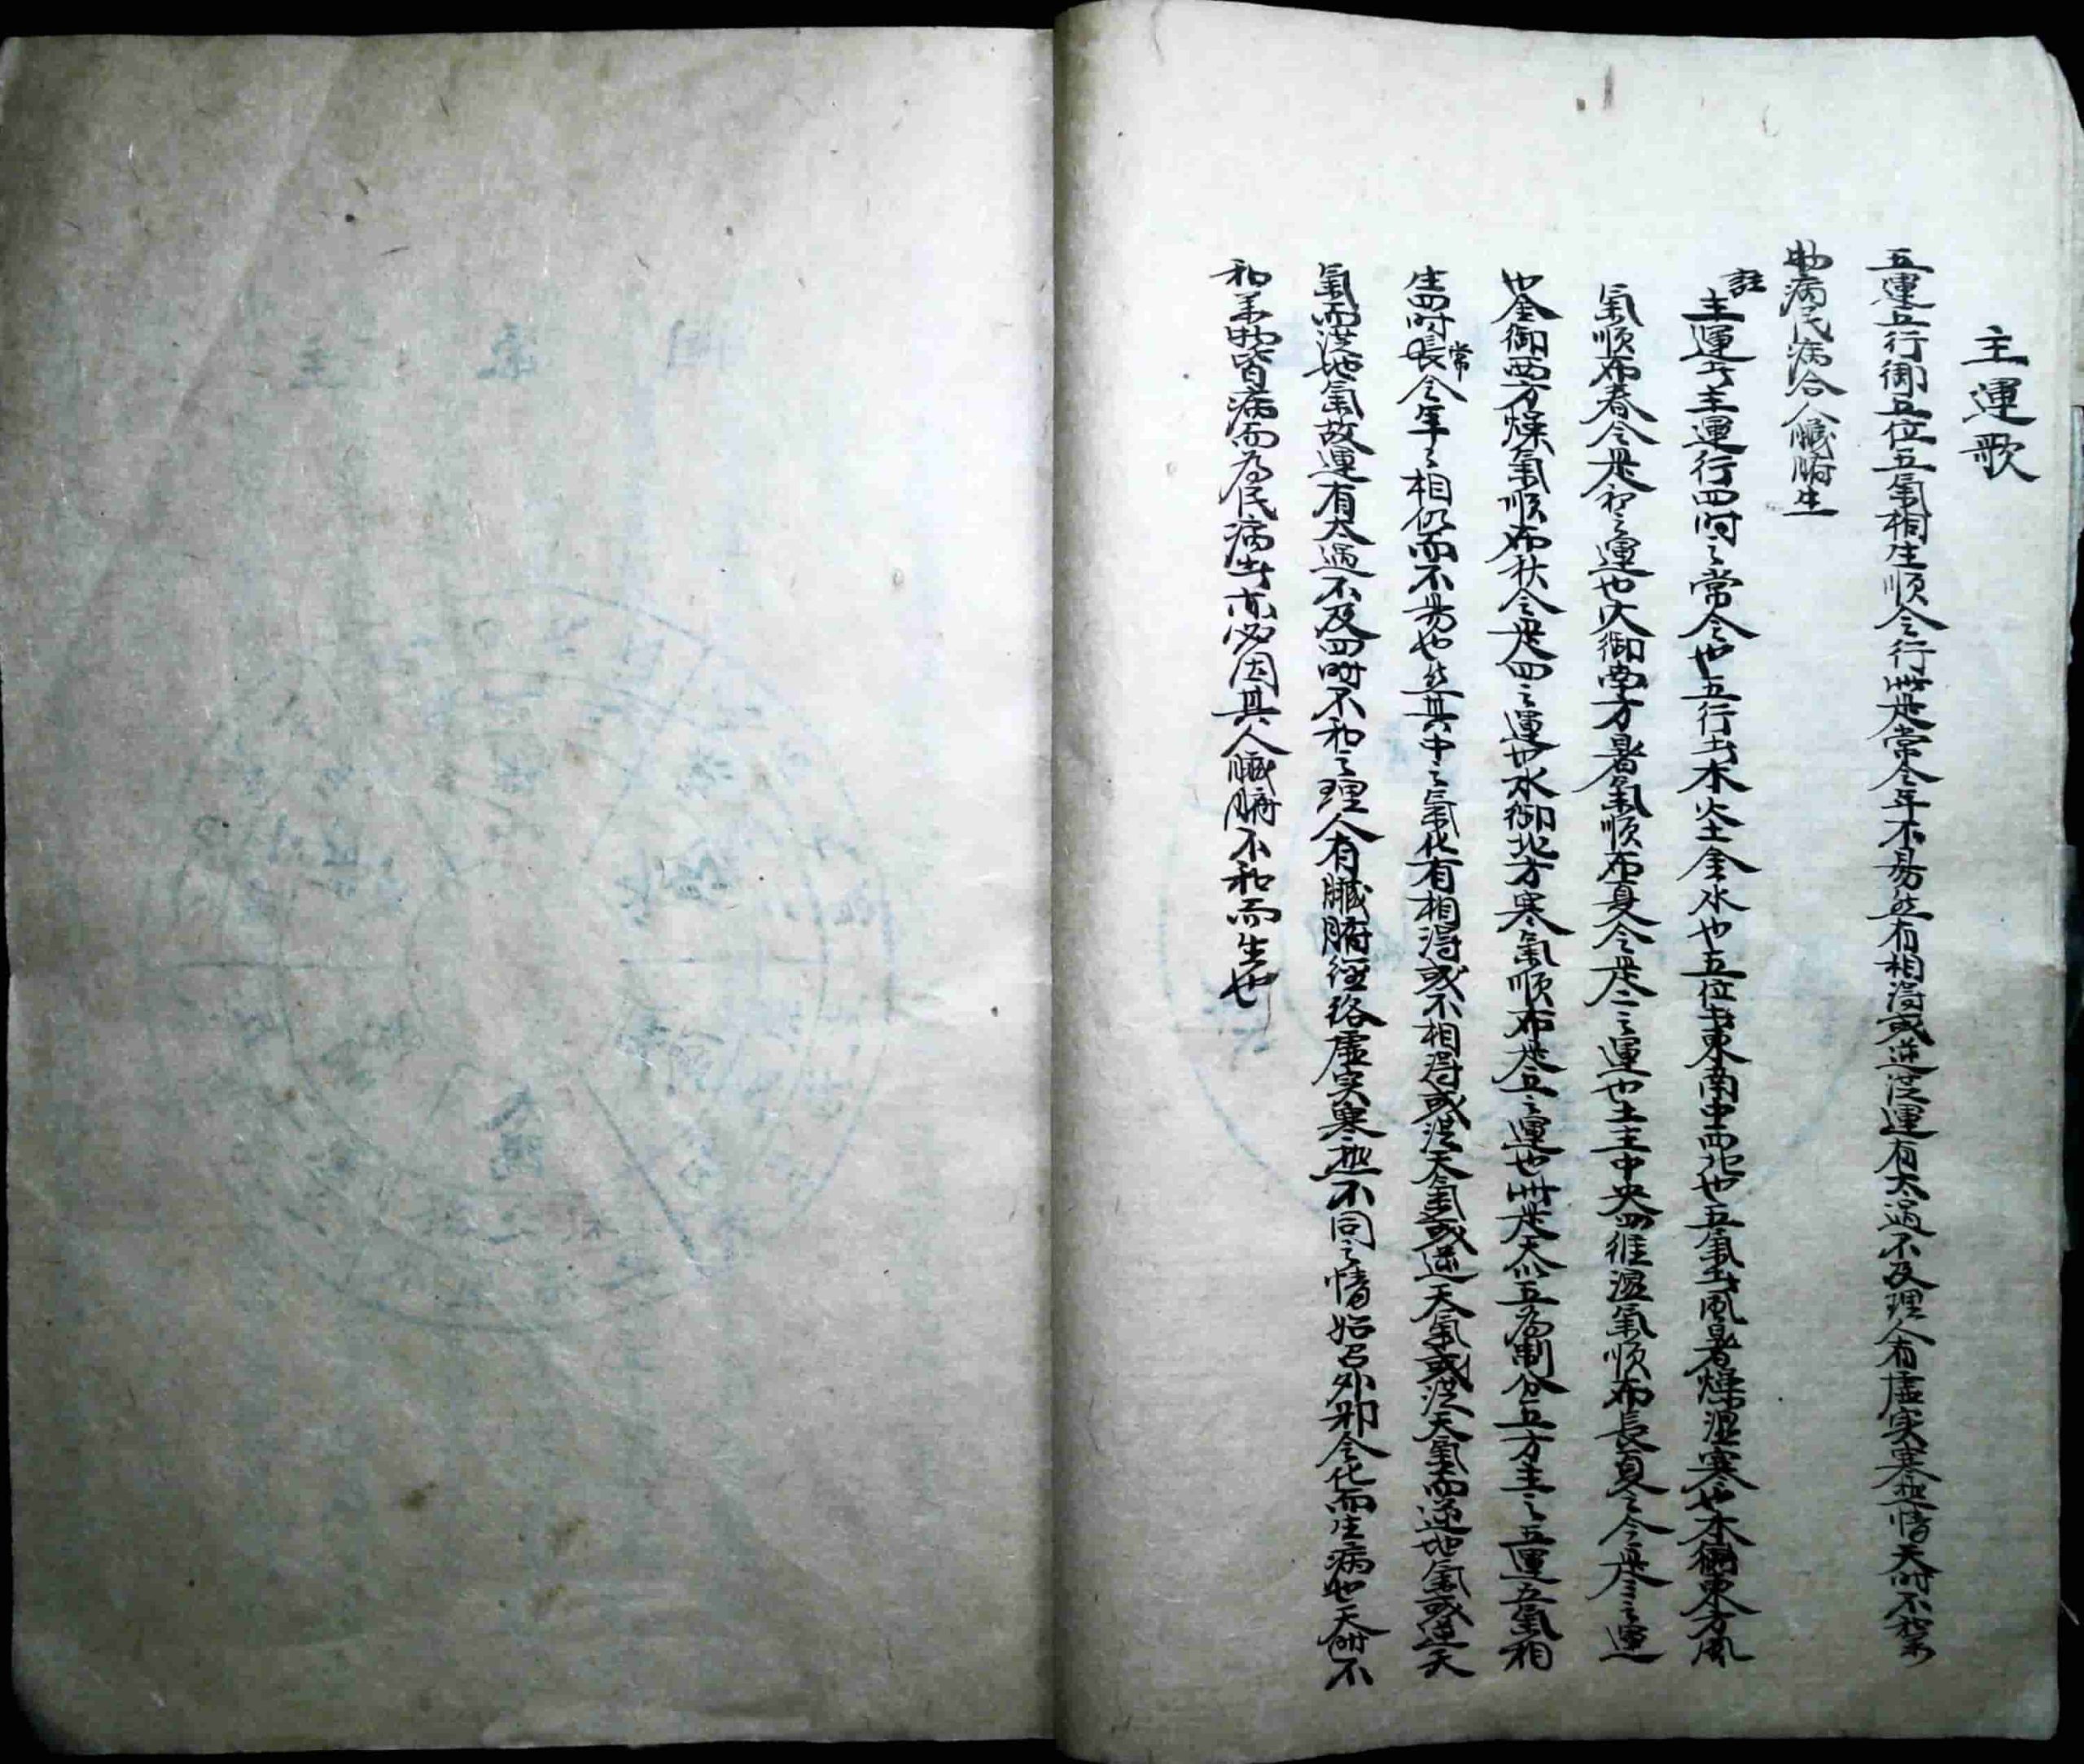 主運歌
五運五行御五位五氣相生順令行此是常令年不易然有相得或逆從運有太過不及理人有虛实寒熱情天時不和萬
物病民病合人臟腑生
註
主運者主運行四時之常令也五行者木火土金水也五位者東南中西北也五氣者風暑燥濕寒也木御東方風
氣順布春令是初之運也火御南方暑氣順布夏令是二之運也土主中央四維濕氣順布長夏之令是三之運
也金御西方燥氣順布秋令是四之運也水御北方寒氣順布是五之運也此是天以五為制分五方主之五運五氣相
生四時長常令年〻相仍而不易也然其中之氣化有相得或不相得或從天氣或逆天氣或從天氣而逆地氣或逆天
氣而從地氣故運有太過不及四時不和之理人有臟腑經絡虛实寒熱不同之情始召外邪令化而生病也天時不
和萬物皆病而為民病者亦必因其人臟腑不和而生也